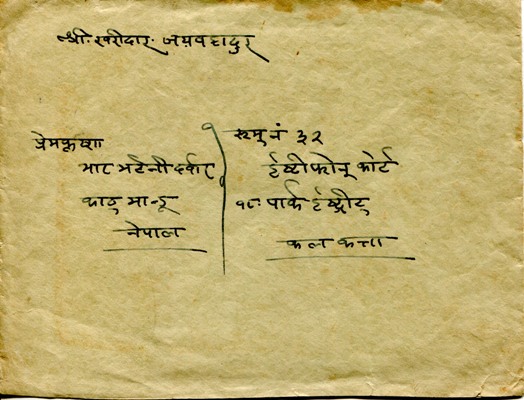 श्री. खरीदार. जयवहादुर
प्रेमकृष्ण
भाटभटेनी दर्वार
काठमान्डू
नेपाल
रूमु नं ३२
ईष्टीफोन् कोर्ट
१८ पार्क ईष्ट्रीट्
कलकत्ता